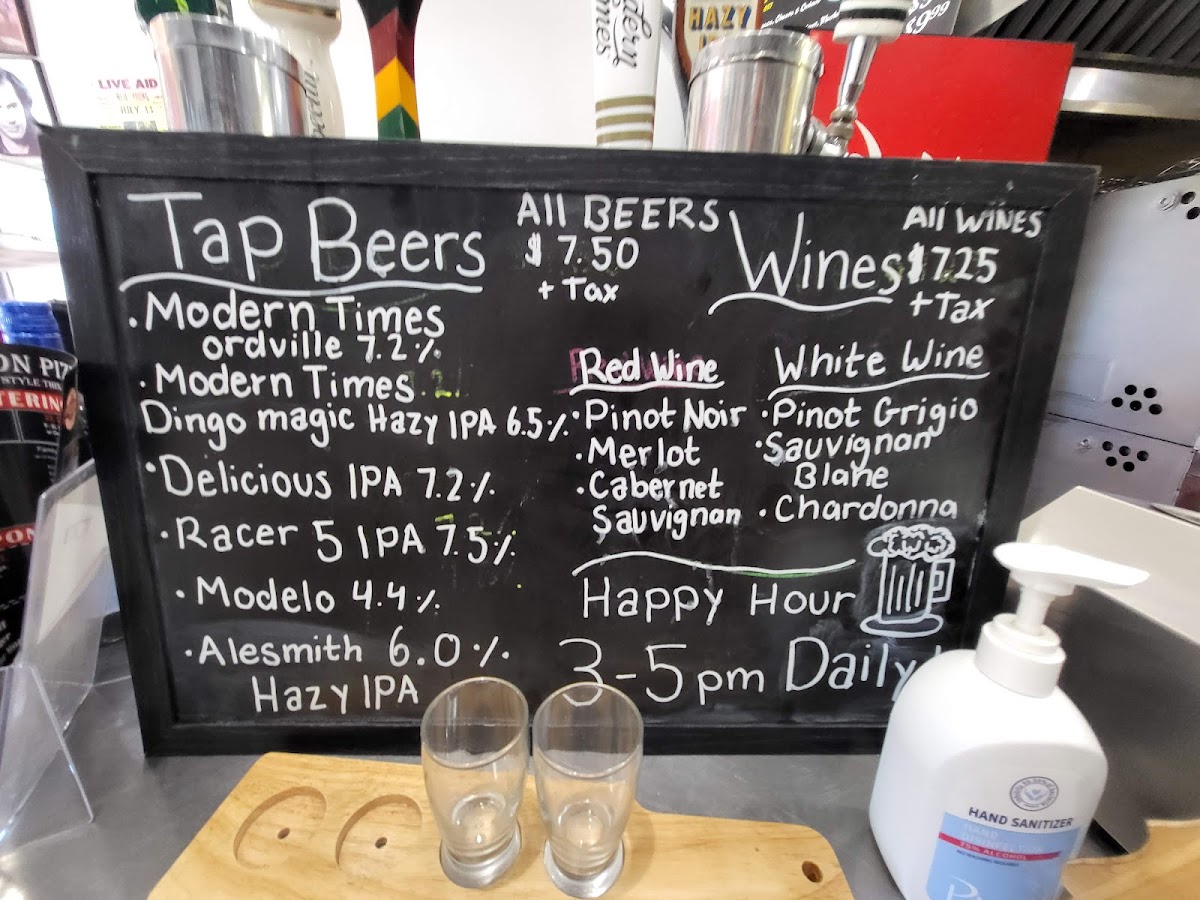 LIVE AID
JULY 13
dern
imes
HAZY
9.99
Tap Beers
All BEERS
$ 7.50
+ Tax
Wines
All WINES
$7.25
+Tax
• Modern Times
ordville 7.2%
• Modern Times
Dingo magic Hazy IPA 6.5%
• Delicious IPA 7.2%
• Racer 5 IPA 7.5%
• Modelo 4.4%
• Alesmith 6.0%
Hazy IPA
Red Wine
• Pinot Noir
• Merlot
• Cabernet
Sauvignan
White Wine
• Pinot Grigio
• Sauvignan
Blane
• Chardonna
Happy Hour
3-5pm Daily
ON PIZ
STYLE THI
TERING
HAND SANITIZER
HAND
DISINFECT
75% ALCOHOL
NO WASHING REQUIRED